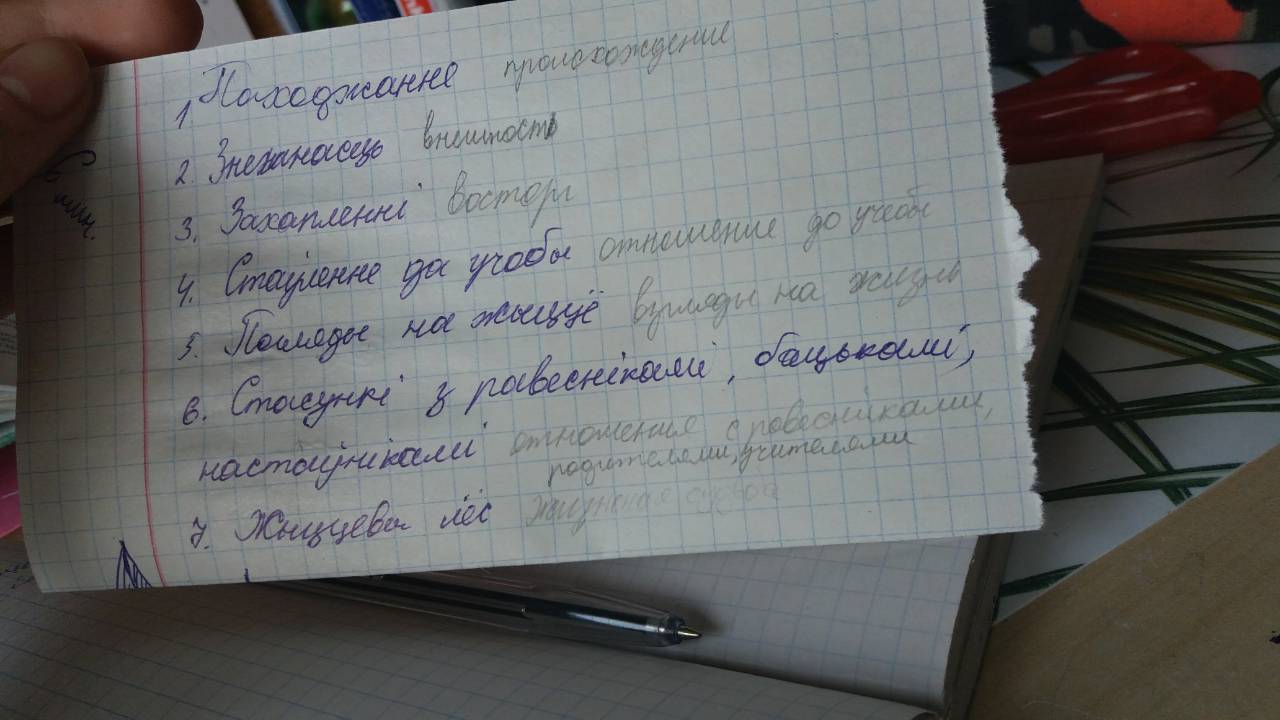 1 Паходжанне происхождение
2. Знешнасць внешность
3. Захапленні восторг
4. Стаўленне да учобы отношение до учебы
5. Погляды на жыццё взгляды на жизнь
6. Стасункі з равеснікамі, бацькамі,
настаўнікамі отношения с ровесниками,
родителями, учителями
7. Жыццевы лёс жизненая судьба
6 мин.